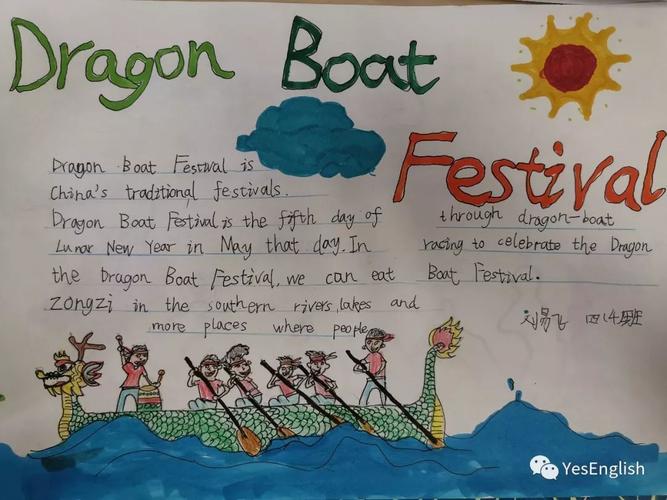 Dragon Boat
Festival
Dragon Boat Festival is
China's traditional festivals.
Dragon Boat Festival is the fifth day of
Lunar New Year in May that day. In
the Dragon Boat Festival, we can eat
zongzi in the southern rivers, lakes and
more places where people
through dragon-boat
racing to celebrate the Dragon
Boat Festival.
刘易飞 四14班
YesEnglish